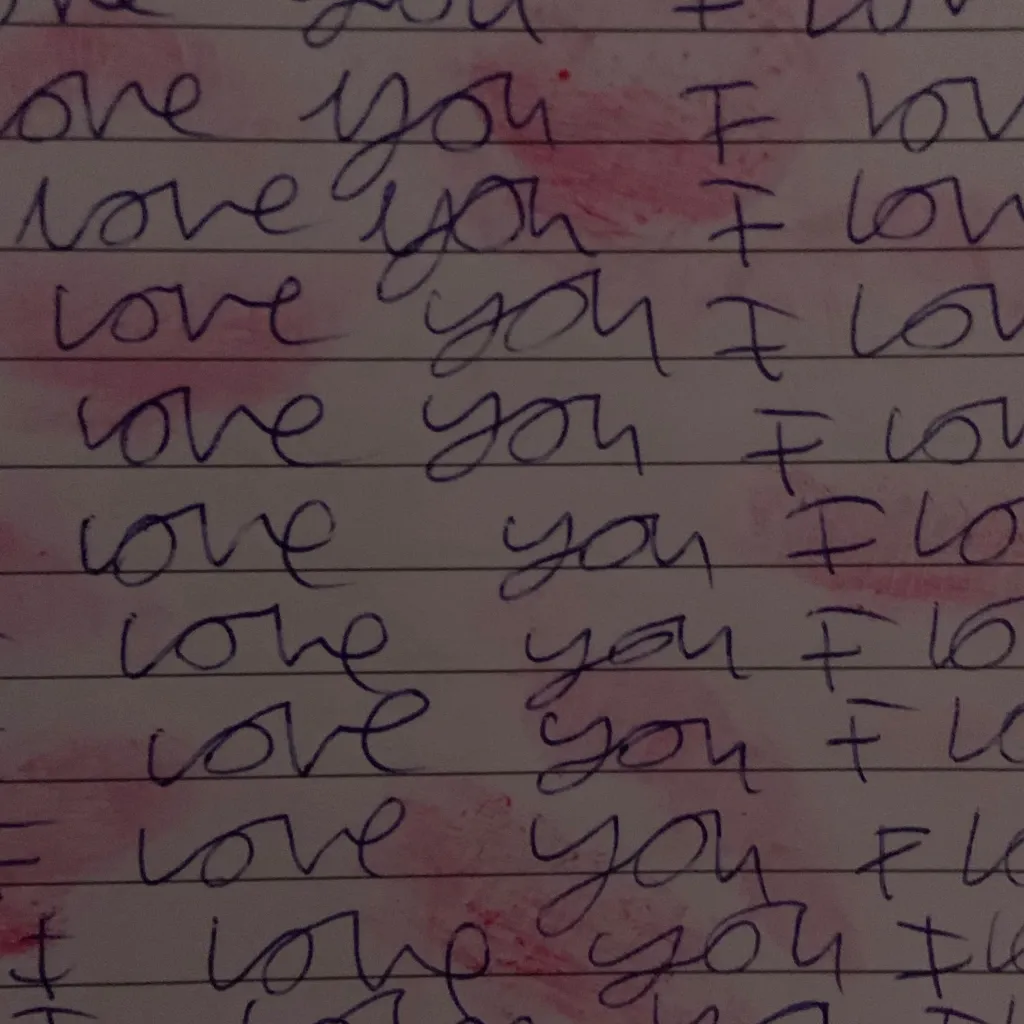 you I lov
ove you I lov
love you I lov
love you I lov
love you I lov
love you I lo
love you I lo
love you I lo
I love you I lo
I love you I lo
I